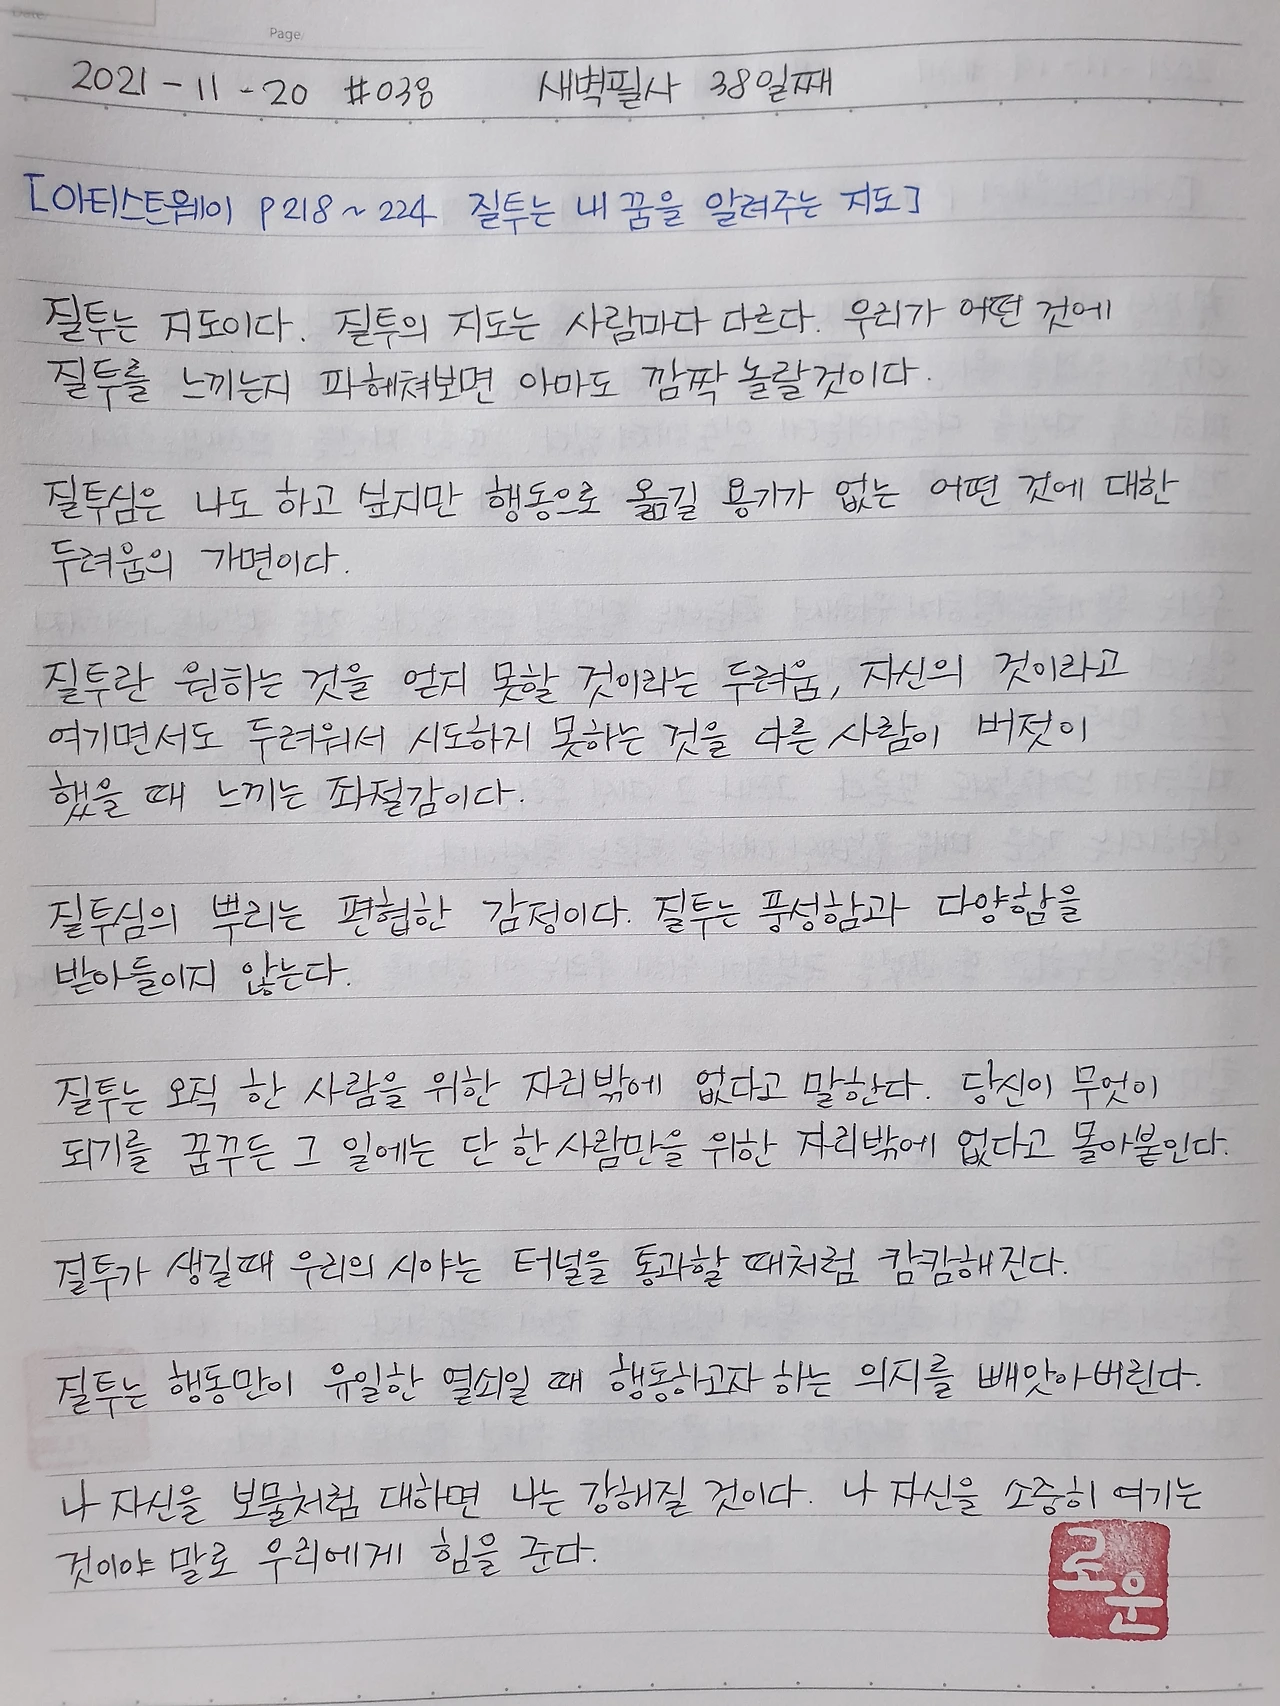 Date/
Page/
2021-11-20 #038 새벽필사 38일째
[아티스트웨이 p218~224 질투는 내 꿈을 알려주는 지도]
질투는 지도이다. 질투의 지도는 사람마다 다르다. 우리가 어떤 것에
질투를 느끼는지 파헤쳐보면 아마도 깜짝 놀랄것이다.
질투심은 나도 하고 싶지만 행동으로 옮길 용기가 없는 어떤 것에 대한
두려움의 가면이다.
질투란 원하는 것을 얻지 못할 것이라는 두려움, 자신의 것이라고
여기면서도 두려워서 시도하지 못하는 것을 다른 사람이 버젓이
했을 때 느끼는 좌절감이다.
질투심의 뿌리는 편협한 감정이다. 질투는 풍성함과 다양함을
받아들이지 않는다.
질투는 오직 한 사람을 위한 자리밖에 없다고 말한다. 당신이 무엇이
되기를 꿈꾸든 그 일에는 단 한 사람만을 위한 자리밖에 없다고 몰아붙인다.
질투가 생길때 우리의 시야는 터널을 통과할 때처럼 캄캄해진다.
질투는 행동만이 유일한 열쇠일 때 행동하고자 하는 의지를 빼앗아버린다.
나 자신을 보물처럼 대하면 나는 강해질 것이다. 나 자신을 소중히 여기는
것이야 말로 우리에게 힘을 준다.
로운